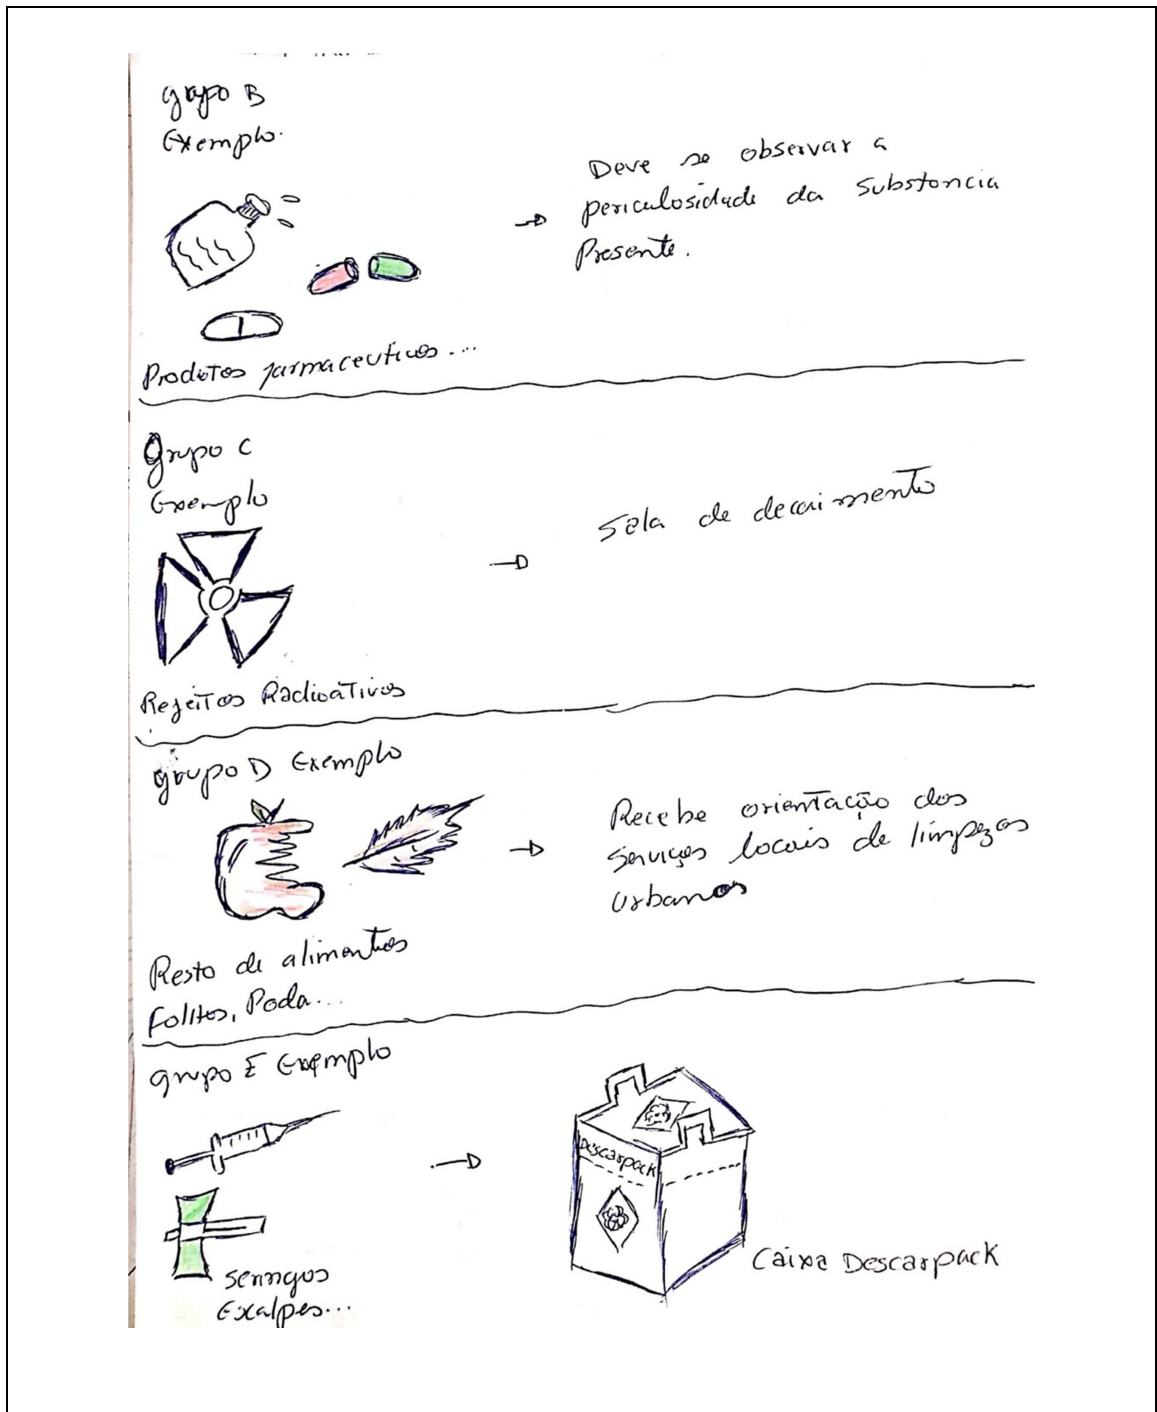 grupo B
Exemplo.
Deve se observar a
periculosidade da substancia
Presente.
Produtos farmaceuticos...
Grupo C
Exemplo
Sala de decaimento
Rejeitos Radioativos
grupo D Exemplo
Recebe orientação dos
serviços locais de limpezas
urbanos
Resto de alimentos
Folhas, Poda...
grupo E Exemplo
Descarpack
Caixa Descarpack
seringas
Exalpes...